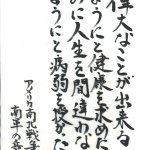 偉大なことが出来る
ようにと健康を求めた
のに人生を間違わな
ようにと病弱を授かった
アメリカ南北戦争
南軍の兵